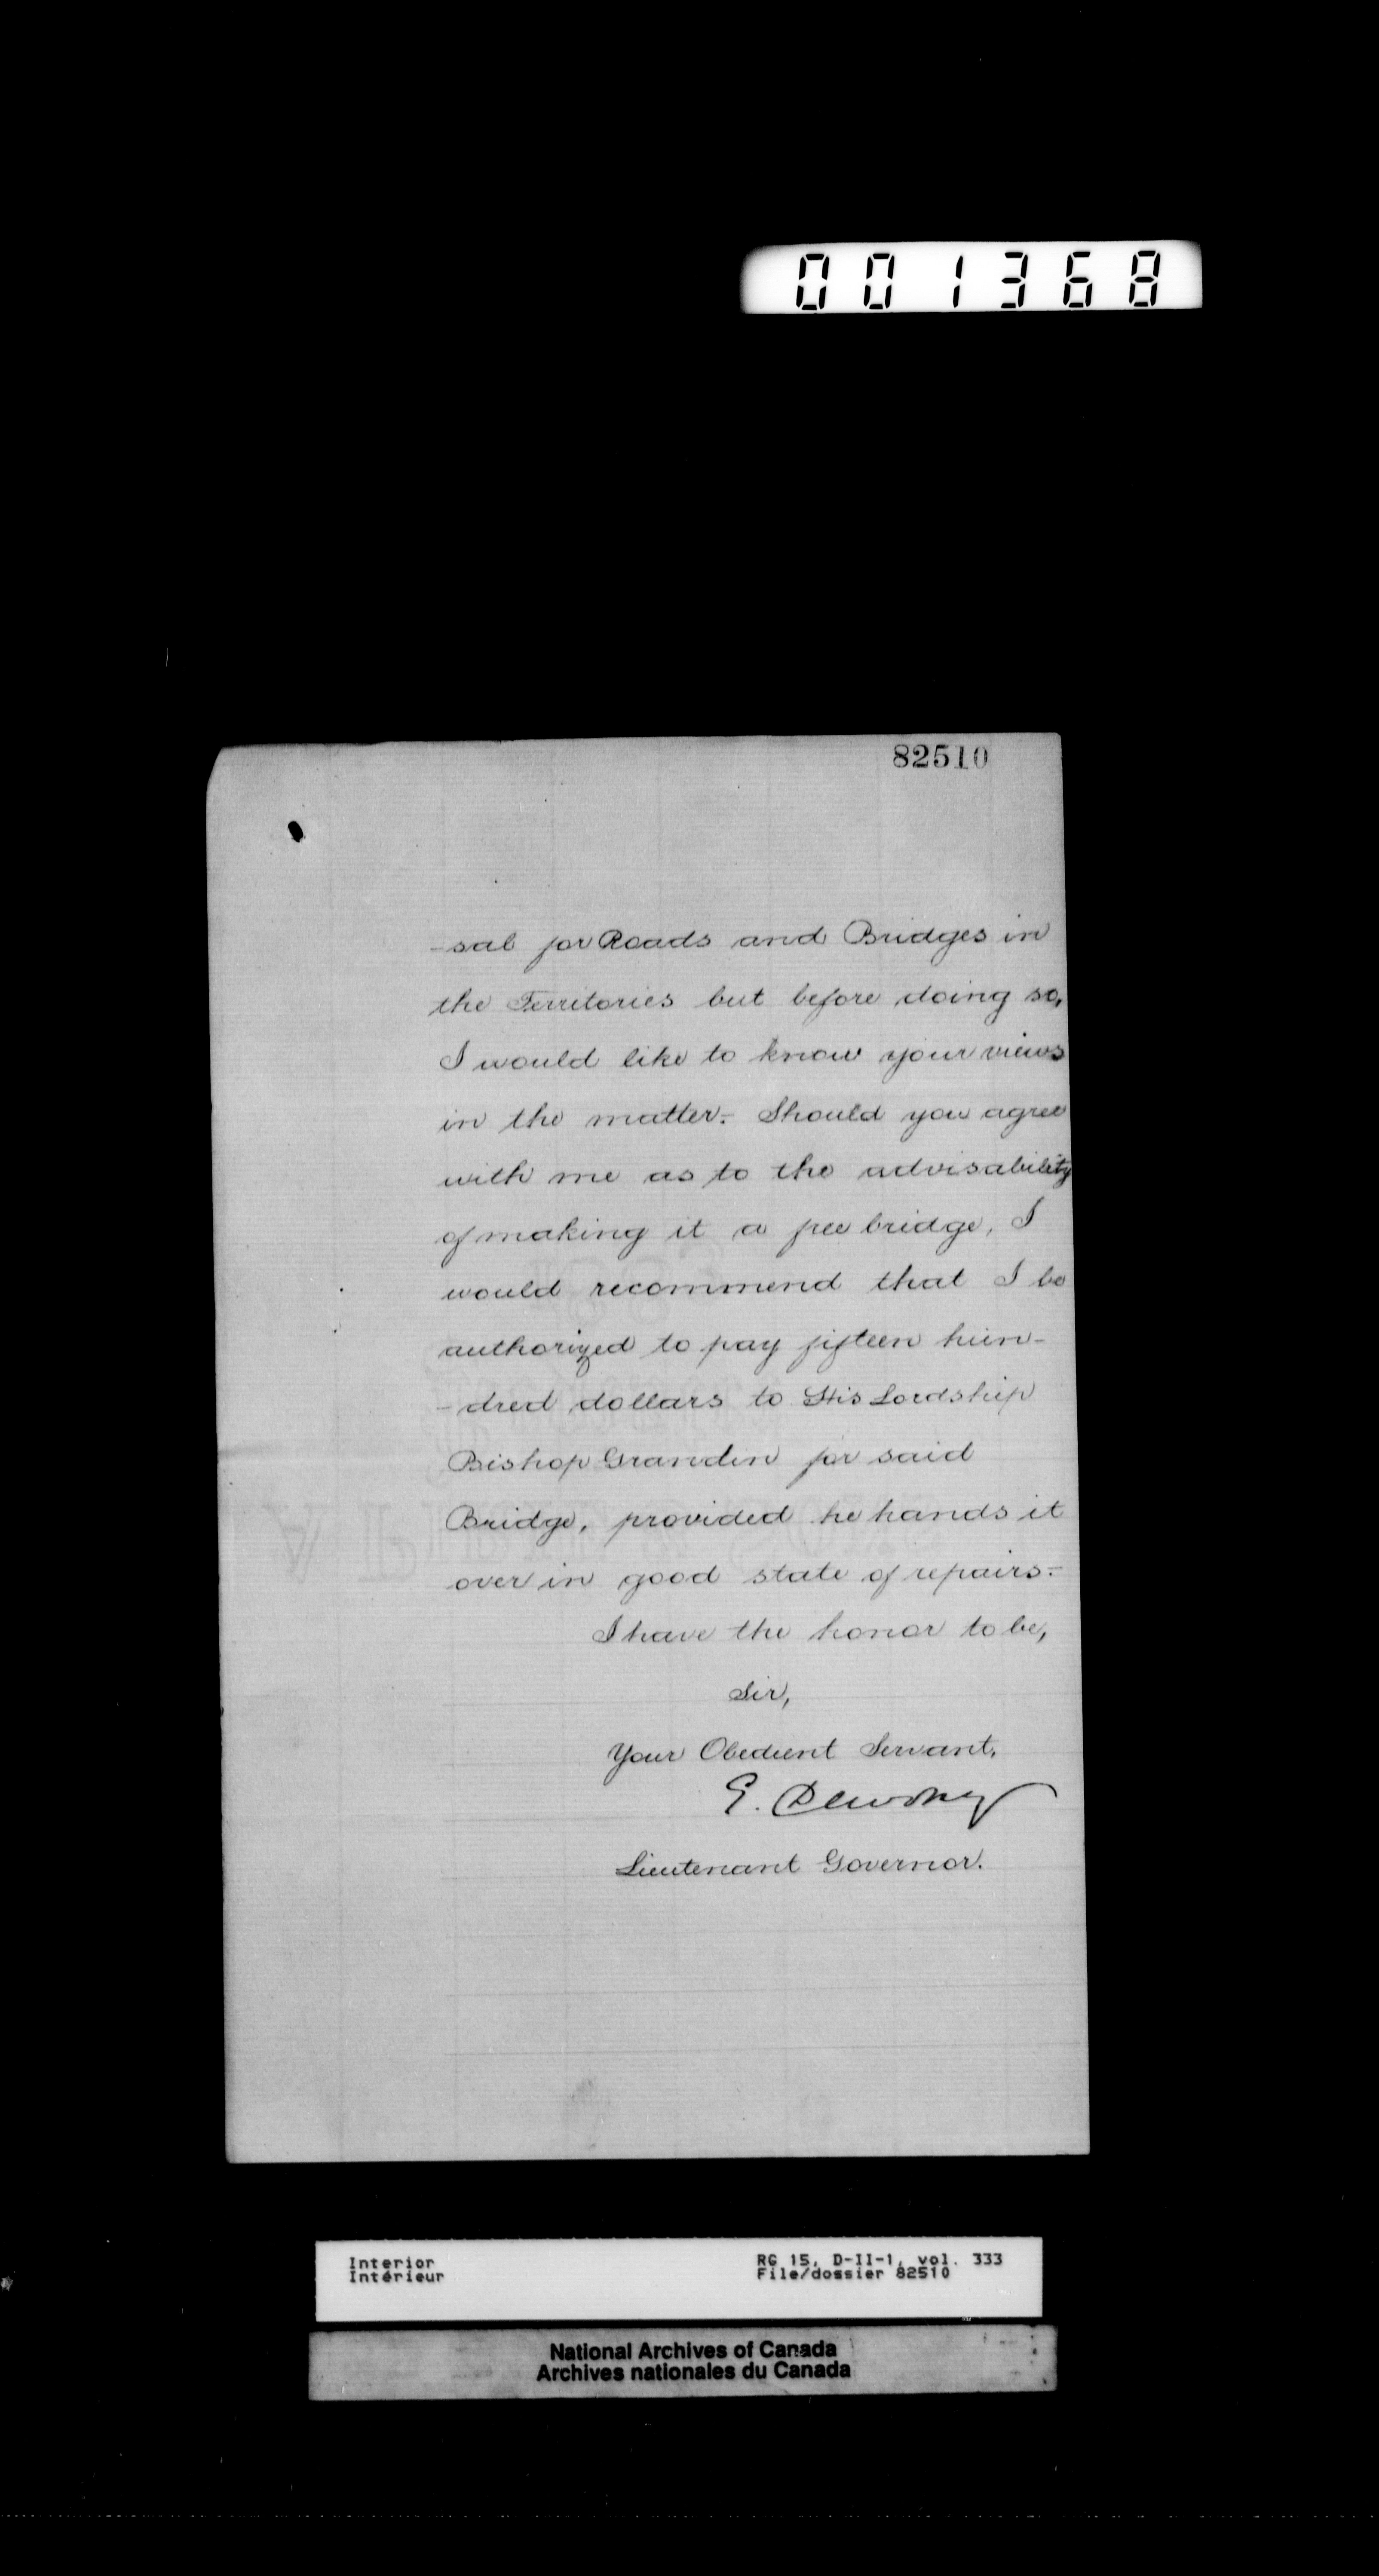 001368
82510
-sal for Roads and Bridges in
the Territories but before doing so,
I would like to know your views
in the matter.- Should you agree
with me as to the advisability
of making it a free bridge, I
would recommend that I be
authorized to pay fifteen hun-
-dred dollars to His Lordship
Bishop Grandin for said
Bridge, provided he hands it
over in good state of repairs.-
I have the honor to be,
Sir,
Your Obedient Servant,
E. Dewdney
Lieutenant Governor.
Interior RG 15, D-II-1, vol. 333
Intérieur File/dossier 82510
National Archives of Canada
Archives nationales du Canada